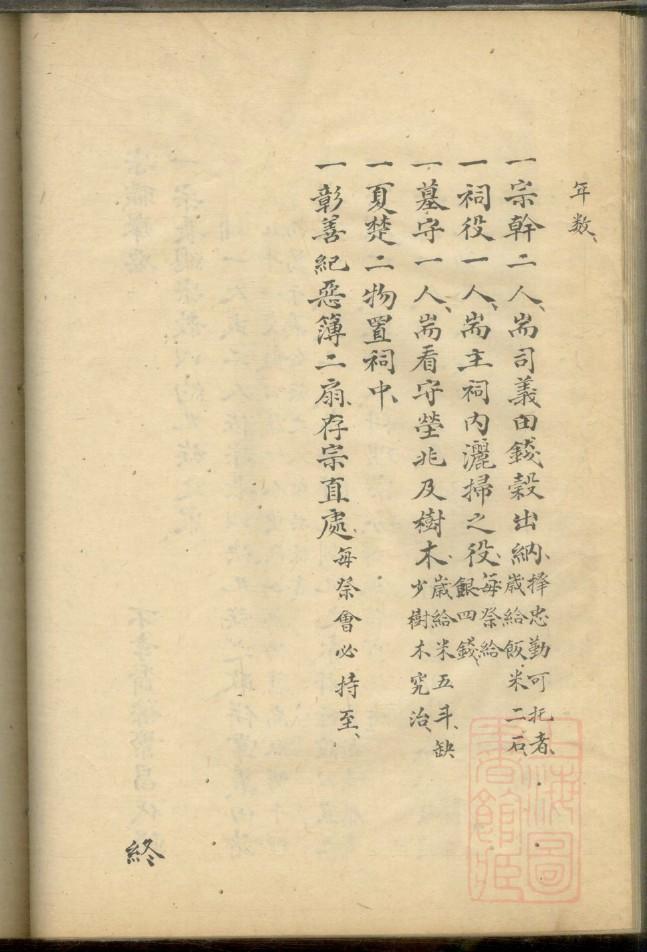 年数、
一宗幹二人、耑司義田錢穀出納、擇忠勤可托者、歲給飯米二石、
一祠役一人、耑主祠内灑掃之役、每祭給銀四錢、
一墓守一人、耑看守塋兆及樹木、歲給米五斗、缺少樹木究治、
一夏楚二物置祠中、
一彰善紀惡簿二扇、存宗直處、每祭會必持至、
終
上海圖書館藏